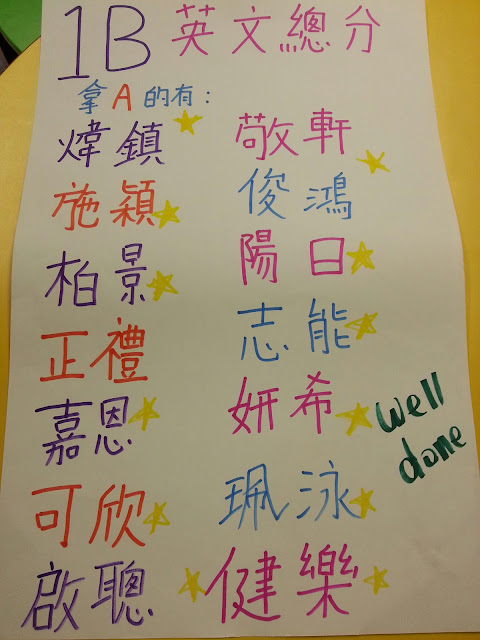 1B 英文總分
拿A的有：
煒鎮 敬軒
施穎 俊鴻
柏景 陽日
正禮 志能
嘉恩 妍希
可欣 珮泳
啟聰 健樂
well
done